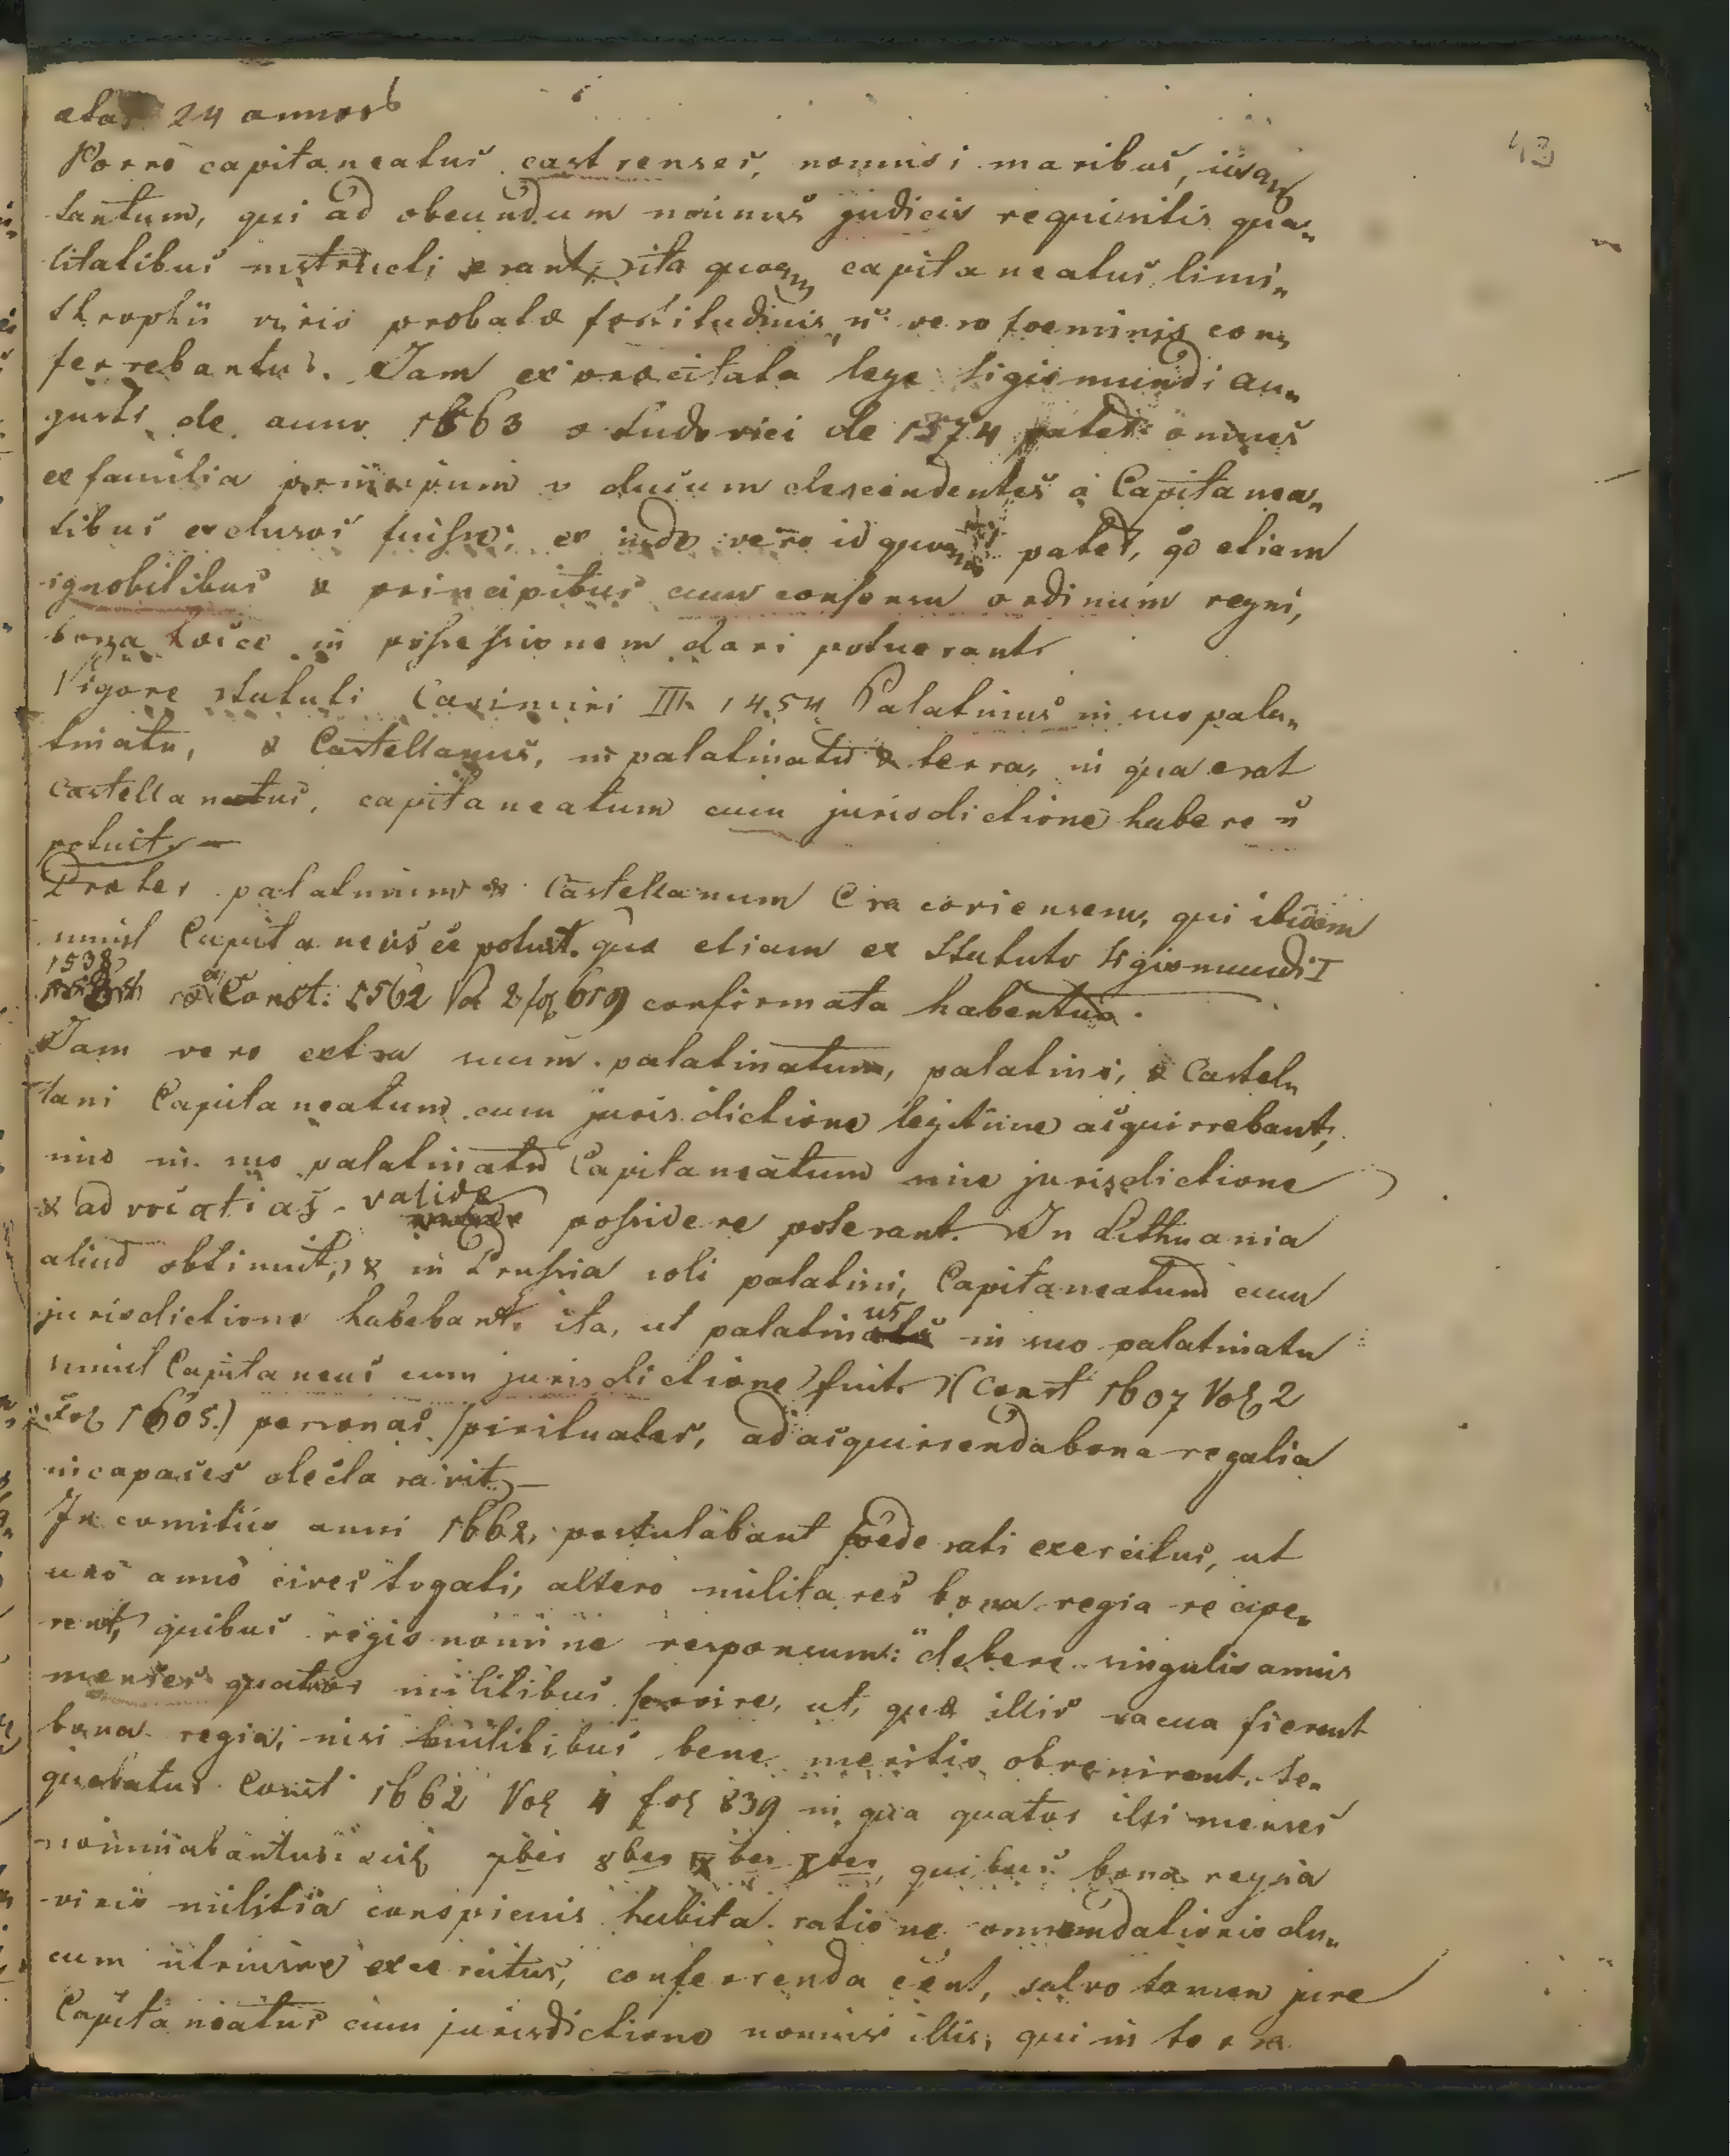 aetas 24 annos
43
Porro capitaneatus castrenses, nonnisi maribus, iisq
tantum, qui ad obeundum munus judicis requisitis qua„
litatibus instructi erant, ita quoq capitaneatus limi„
throphii viris probatæ fortitudinis, ñ vero foeminis con„
ferrebantur. Jam ex præcitata lege Sigismundi Au„
gusti de anno 1563 & Ludovici de 1374 patet omnes
ex familia principum & ducum descendentes a Capitanea„
tibus exclusos fuisse; ex inde vero id quoq patet, qd etiam
ignobilibus & principibus cum consensu ordinum regni,
bona in possessionem dari potuerant.
Vigore statuti Casimiri III 1454 Palatinus in suo pala„
tinatu, & Castellanus, in palatinatu & terra, in qua erat
castellanatus, capitaneatum cum jurisdictione habere ñ
potuit. —
Præter palatinum & Castellanum Cracoviensem, qui ibidem
simul Capitaneus ee potuit. quæ etiam ex Statuto Sigismundi I
1538 & Const: 1562 Vol 2 fol 619 confirmata habentur.
Jam vero extra suum palatinatum, palatini, & Castel„
lani Capitaneatum cum jurisdictione legitime acquirrebant,
imo in suo palatinatu Capitaneatum sine jurisdictione
& advocatias valide possidere poterant. In Lithuania
aliud obtinuit, & in Prussia soli palatini, Capitaneatum cum
jurisdictione habebant. ita, ut palatinus in suo palatinatu
simul Capitaneus cum jurisdictione fuit. (Const 1607 Vol 2
Fol 1605.) personas spirituales, ad acquirenda bona regalia
incapaces declaravit. —
In comitiis anni 1662, postulabant foederati exercitus, ut
uno anno cives togati, altero militares bona regia recipe„
rent, quibus regis nomine responsum: "debere singulis annis
menses quatuor militibus servire, ut, quæ illis vacua fierent
bona regia, nisi militibus bene meritis obvenirent. Se„
quebatur Const 1662 Vol 4 fol 839 in qua quatuor illi menses
nominabantur: 7bes 8ber IXber Xber, quibus bona regia
viris militia conspicuis habita ratione commendationis du„
cum utriusque exercitus, conferrenda eent, salvo tamen jure
Capitaneatus cum jurisdictione nonnisi illis, qui in terra